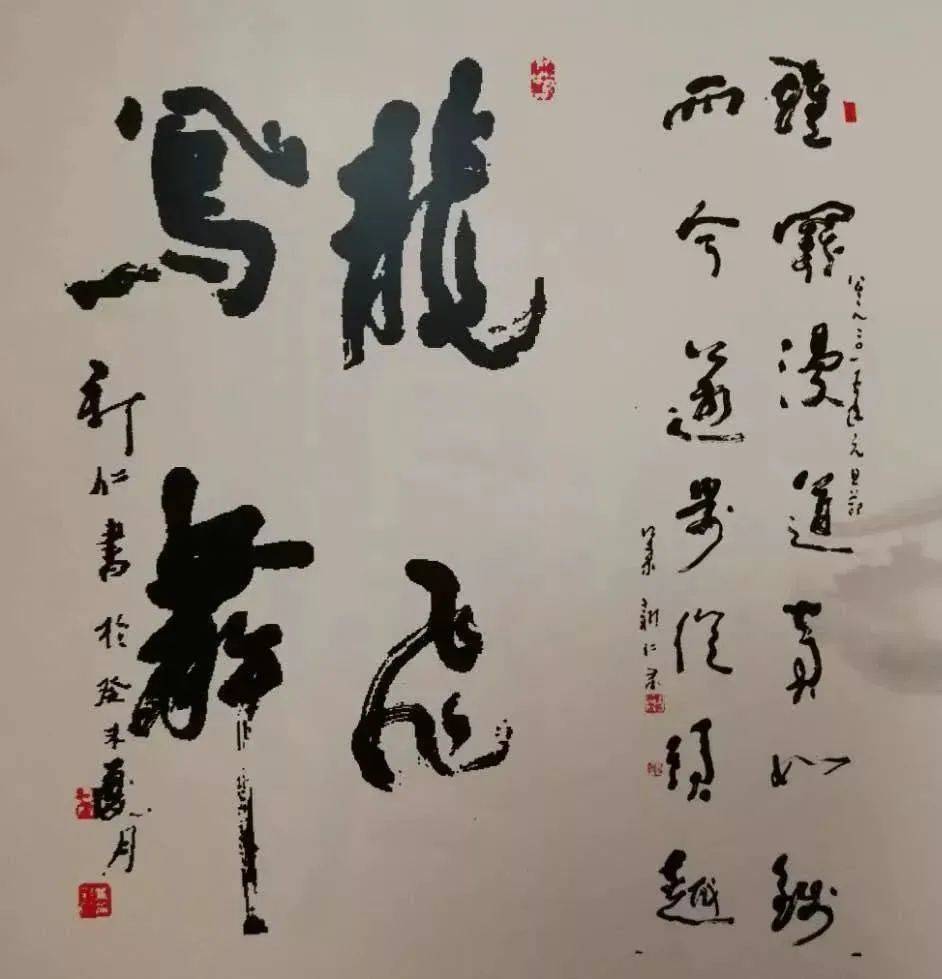 雄關漫道真如鐵
年元旦
而今邁步從頭越
新仁
龍飛
鳳舞
新仁書於癸未夏月